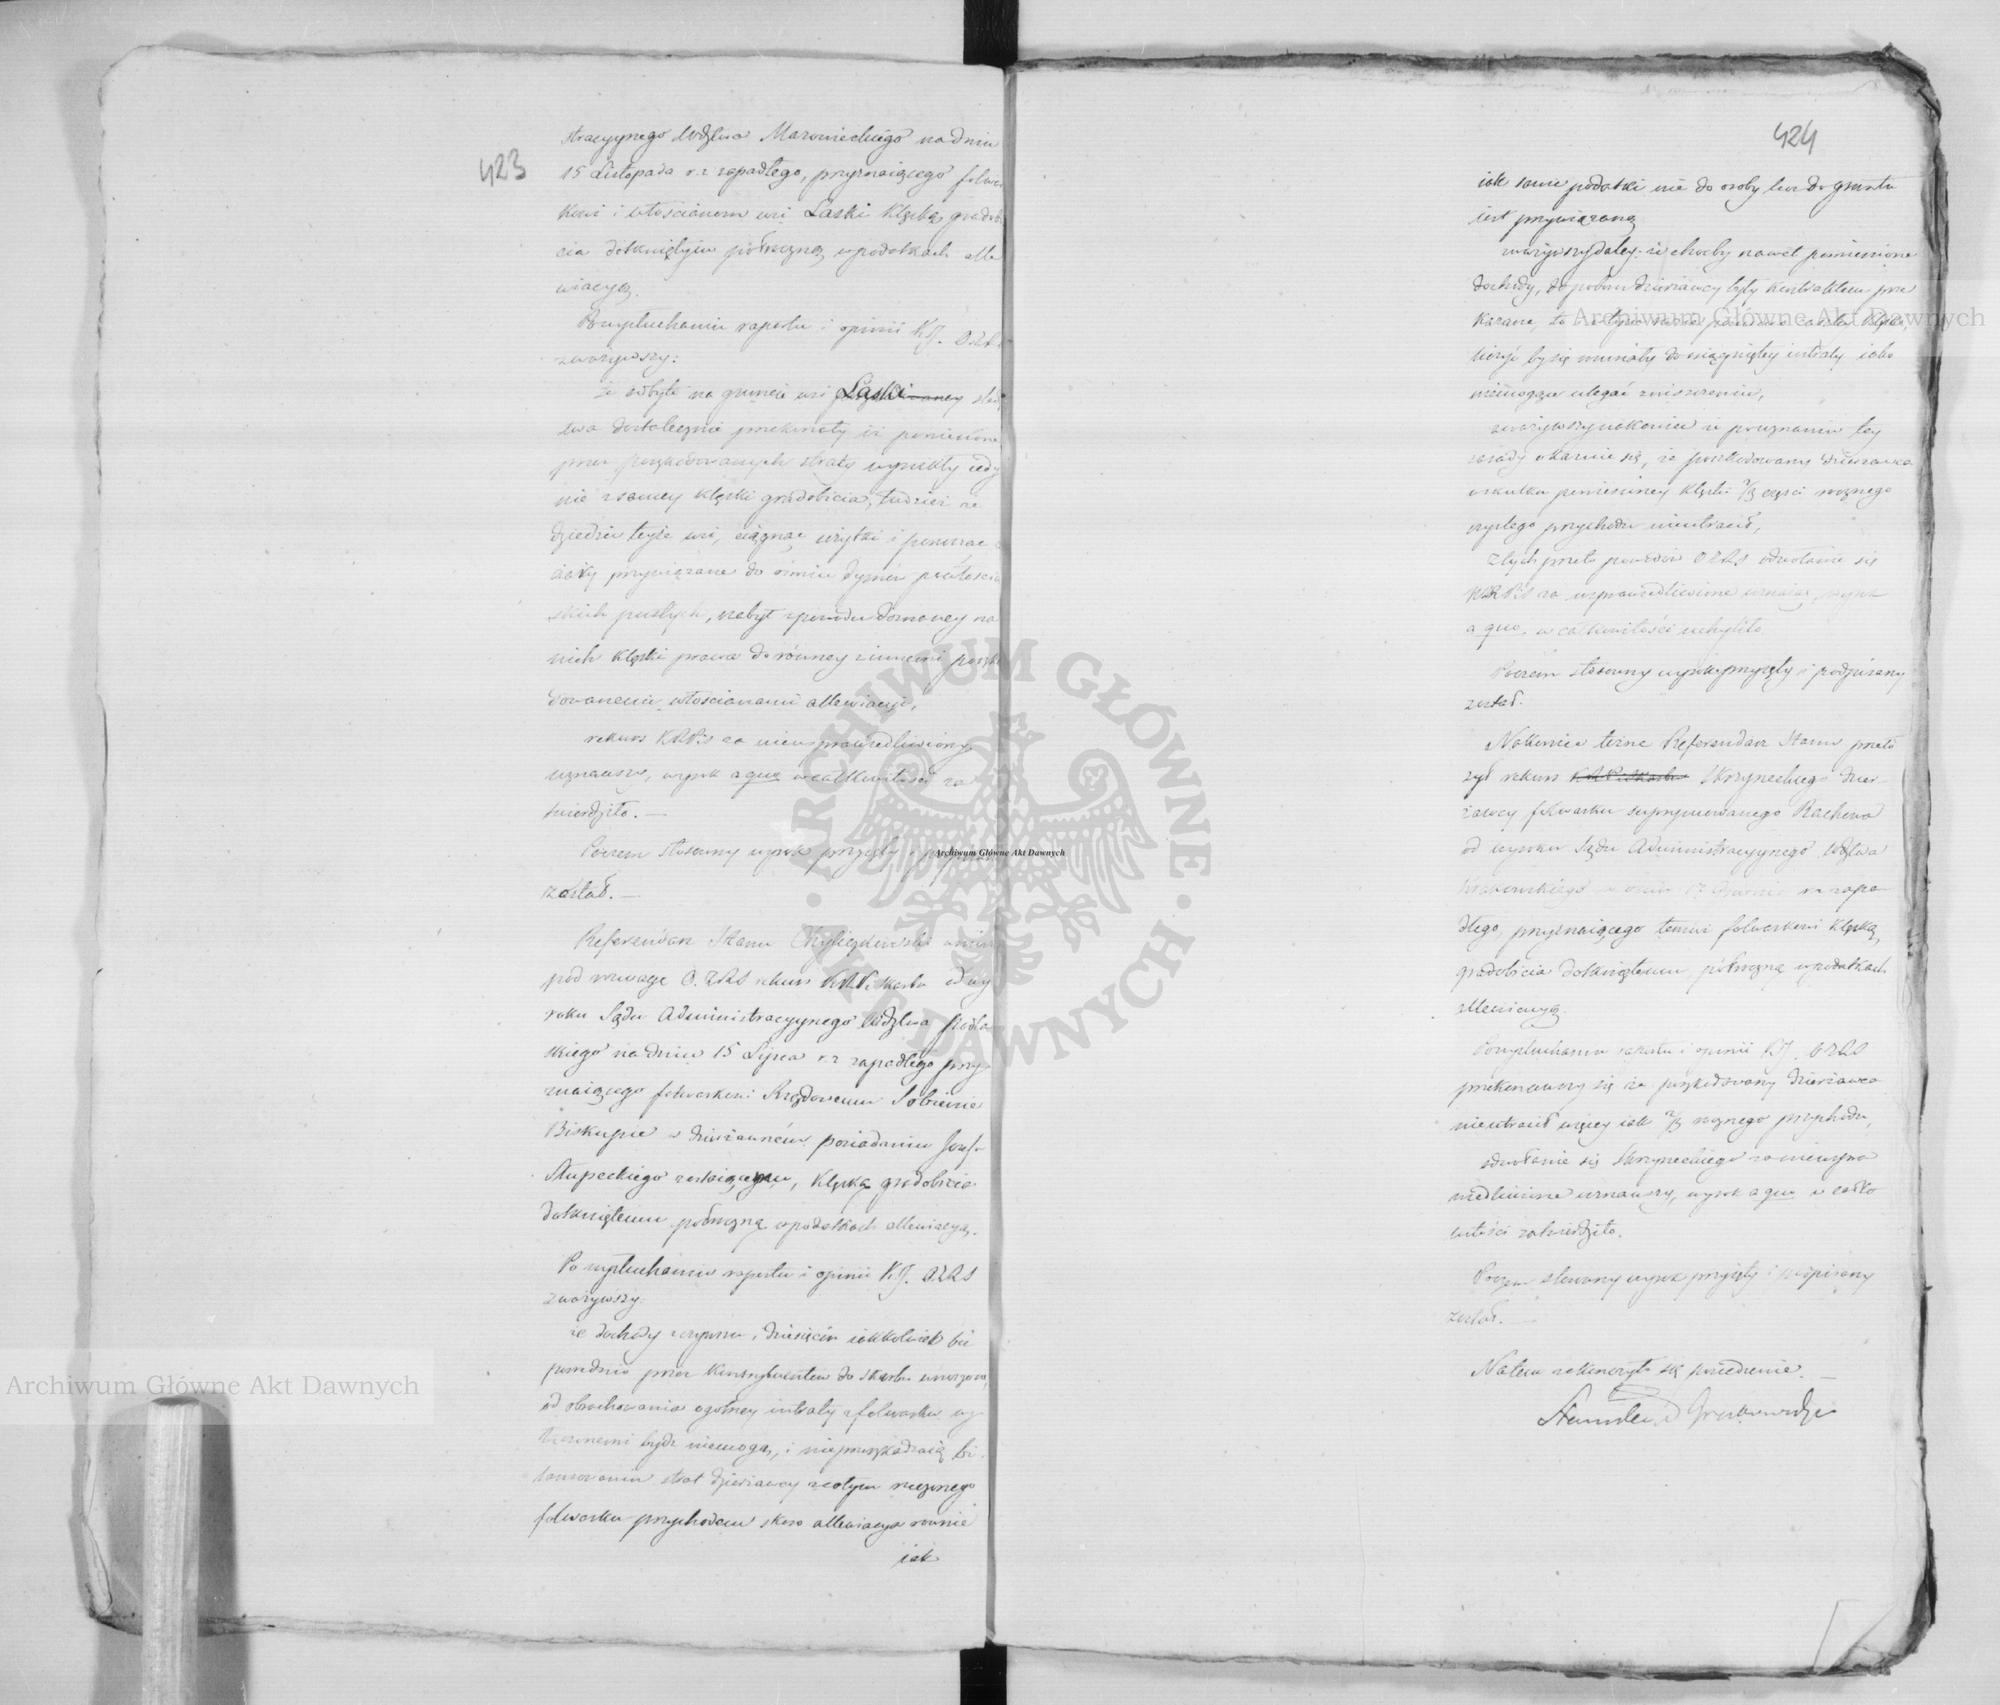 423
stracyynego Wdztwa Mazowieckiego na dniu
15 Listopada r.z. zapadłego, przyznaiącego folwar
kowi i włościanom wsi Laski klęską gradob
cia dotkniętym półroczną w podatkach alle
wiacyą.
Po wysłuchaniu raportu i opinii KJ. OZRS
zważywszy:
że odbyte na gruncie wsi Laski śledz
twa dostatecznie przekonały iż poniesione
przez poszkodowanych straty wynikły iedy
nie z samey klęski gradobicia, tudzież że
dziedzic teyże wsi, ciągnąc użytki i ponosząc
ciężary przywiązane do ośmiu dymów po włościa
skich pustych, nabył z powodu doznaney na
nich klęski prawa do równey z innemi poszko
dowanemi włościanami allewiacyi,
rekurs KRPiS za nieusprawiedliwiony
uznawszy, wyrok a quo w całkowitości za
twierdziło. —
Poczem stosowny wyrok przyięty i podpisany
został. —
Referendarz Stanu Chyliczkowski wniósł
pod rozwagę O.ZRS rekurs KRP. i Skarbu od wy
roku Sądu Administracyynego Wdztwa Podla
skiego na dniu 15 Lipca r.z. zapadłego przy
znaiącego folwarkowi Rządowemu Sobienie
Biskupie w dzierżawném posiadaniu Józefa
Słupeckiego zostaiącemu, klęską gradobicia
dotkniętemu półroczną w podatkach allewiacyą.
Po wysłuchaniu raportu i opinii KJ. OZRS
zważywszy
że dochody z czynszu, dziesięcin iakkolwiek bez
pośrednio przez kontrybuentów do skarbu wnoszone,
od obrachowania ogólney intraty z folwarku wy
łączonemi bydź niemogą, i nieprzeszkadzaią bi
lansowaniu strat dzierżawcy z całym rocznego
folwarku przychodem skoro allewiacya równie
iak
424
iak same podatki nie do osoby lecz do gruntu
iest przywiązaną
zważywszy daley: że choćby nawet pomienione
dochody, do poboru dzierżawcy były kontraktem prze
kazane, to
któreyby się winiały do osiągniętey intraty iako
niemogące ulegać zniszczeniu,
zważywszy nakoniec że po uznaniu tey
zasady okazuie się, że poszkodowany dzierżawca
w skutku poniesioney klęski 2/3 części rocznego
czystego przychodu nieutracił,
Z tych przeto powodów OZRS odwołanie się
KRPiS za usprawiedliwione uznaiąc, wyrok
a quo w całkowitości uchyliło
Poczem stosowny wyrok przyięty i podpisany
został.
Nakoniec tenże Referendarz Stanu przeło
żył rekurs Skrzyneckiego dzier-
żawcy folwarku supprymowanego Rachowa
od wyroku Sądu Administracyynego Wdztwa
Krakowskiego na dniu 17 Grudnia r.z. zapa
dłego, przyznaiącego temuż folwarkowi klęską
gradobicia dotkniętemu, półroczną w podatkach
allewiacyą.
Po wysłuchaniu raportu i opinii KJ. OZRS
przekonawszy się że poszkodowany dzierżawca
nieutracił więcey iak 2/3 rocznego przychodu,
odwołanie się Skrzyneckiego za nieuspra
wiedliwione uznawszy, wyrok a quo w całko
witości zatwierdziło.
Poczem stosowny wyrok przyięty i podpisany
został. —
Na tem zakończyło się posiedzenie. —
Archiwum Główne Akt Dawnych
Archiwum Główne Akt Dawnych
Archiwum Główne Akt Dawnych
ARCHIWUM GŁÓWNE · AKT DAWNYCH ·